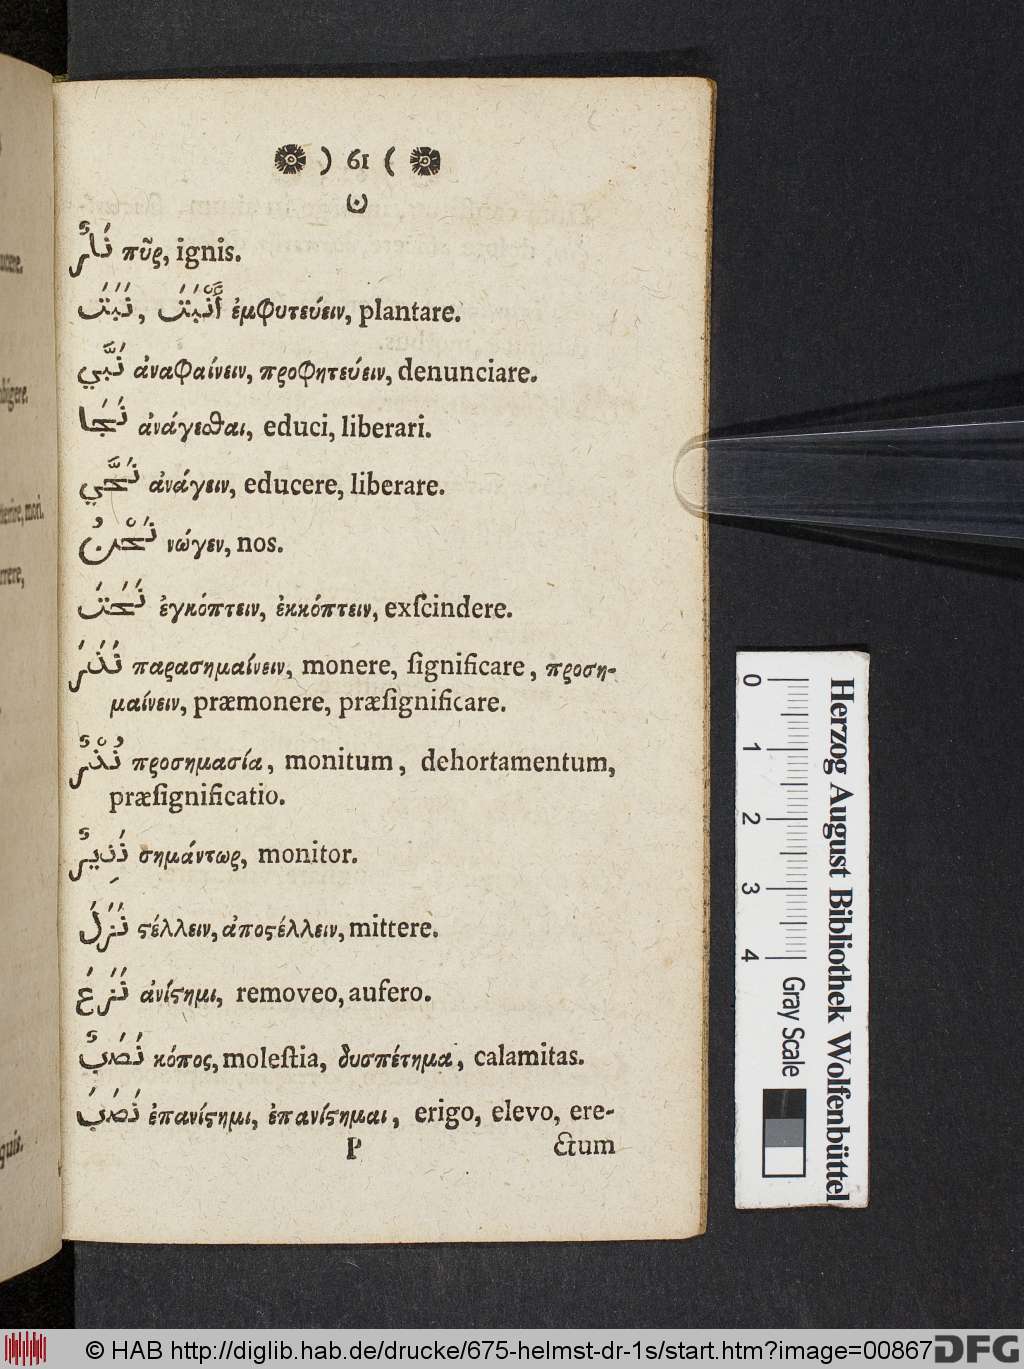 ) 61 (
ن
نَارٌ πῦρ, ignis.
نَبَتَ, أَنْبَتَ ἐμφυτεύειν, plantare.
نَبَّي ἀναφαίνειν, προφητεύειν, denunciare.
نَجَا ἀνάγεσθαι, educi, liberari.
نَجَّي ἀνάγειν, educere, liberare.
نَحْنُ νώγεν, nos.
نَحَتَ ἐγκόπτειν, ἐκκόπτειν, exſcindere.
نَذَرَ παρασημαίνειν, monere, ſignificare, προση-
μαίνειν, præmonere, præſignificare.
نُذْرٌ προσημασία, monitum, dehortamentum,
præſignificatio.
نَذِيرٌ σημάντωρ, monitor.
نَزَلَ ϛέλλειν, ἀποϛέλλειν, mittere.
نَزَعَ ἀνίϛημι, removeo, aufero.
نَصَبٌ κόπος, moleſtia, δυσπέτημα, calamitas.
نَصَبَ ἐπανίϛημι, ἐπανίϛημαι, erigo, elevo, ere-
P ctum
ucere.
mori.
rrere,
guis.
0 1 2 3 4
Gray Scale
Herzog August Bibliothek Wolfenbüttel
© HAB http://diglib.hab.de/drucke/675-helmst-dr-1s/start.htm?image=00867
DFG